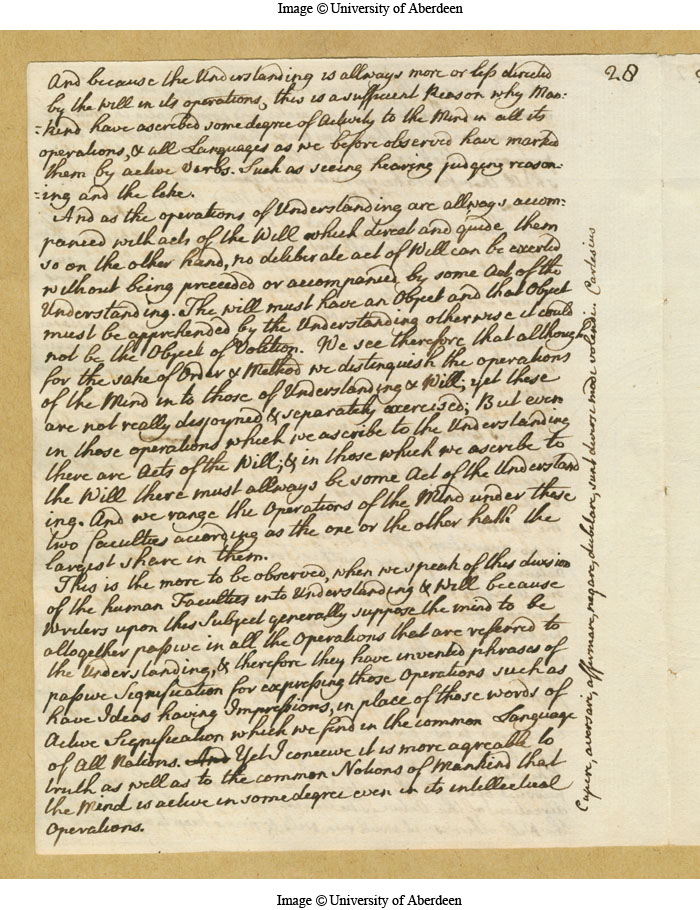 Image © University of Aberdeen
28
And because the Understanding is allways more or less directed
by the Will in its operations, this is a sufficient Reason why Man-
=kind have ascribed some degree of Activity to the Mind in all its
operations, & all Languages as we before observed have marked
them by active Verbs. Such as seeing hearing judging reason=
=ing and the like.
And as the operations of Understanding are allways accom-
panied with acts of the Will which direct and guide them
so on the other hand, no deliberate act of Will can be exerted
without being preceeded or accompanied by some Act of the
Understanding. The will must have an Object and that Object
must be apprehended by the Understanding otherwise it could
not be the Object of Volition. We see therefore that although
for the sake of Order & Method we distinguish the operations
of the Mind into those of Understanding & Will; yet these
are not really disjoyned & separately exercised; But even
in those operations which we ascribe to the Understanding
there are Acts of the Will; & in those which we ascribe to
the Will there must allways be some Act of the Understand
ing. And we range the Operations of the Mind under these
two faculties according as the one or the other hath the
largest share in them.
This is the more to be observed, when we speak of this division
of the human Faculties into Understanding & Will because
Writers upon this Subject generally suppose the mind to be
altogether passive in all the Operations that are referred to
the Understanding, & therefore they have invented phrases of
passive Signification for expressing those Operations such as
have Ideas having Impressions, in place of those words of
Active Signification which we find in the common Language
of All Nations. And Yet I conceive it is more agreable to
truth as well as to the common Notions of Mankind that
the Mind is active in some degree even in its intellectual
Operations.
Cupere, aversari, affirmare, negare, dubitare, sunt diversi modi volendi. Cartesius
Image © University of Aberdeen